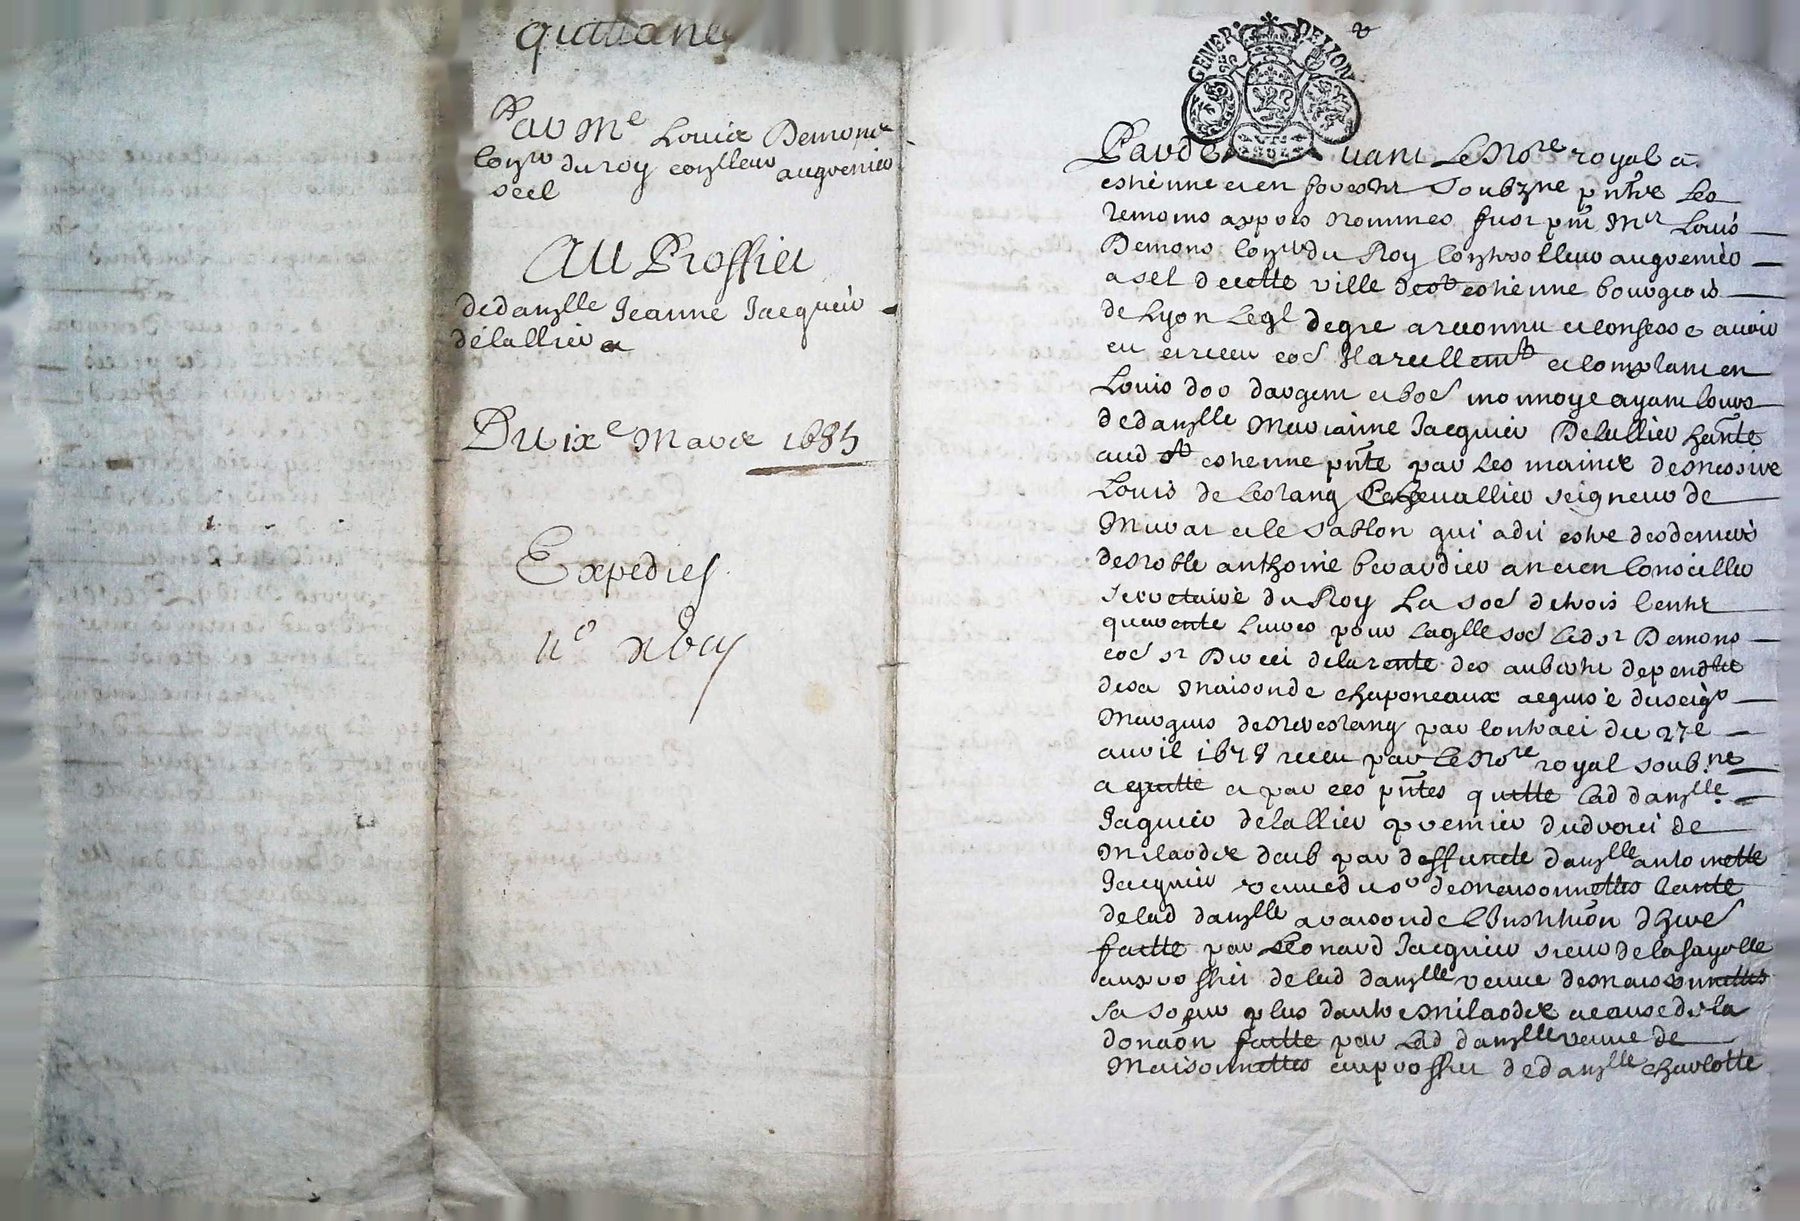 quittance
Par Me Louis Demons
Conser du roy conlleur au grenier
seel
Au Proffict
de danzlle Jeanne Jacquier
délallier
Du ixe Mars 1685
Expedies
GENER DE LION
Pardevant le Nore royal a
estienne et en forestz soubzne pnts les
temoins appres nommes fust pnt Mr Louis
Demons Conser du Roy Controlleur au grenier
a sel de cette ville de st estienne bourgeois
de Lyon Leql de gre a reconnu et confesse avoir
eu et receu cod reellemt et comptant en
Louis dor dargent et bos monnoye ayant cours
de danzlle Marianne Jacquier Delallier hante
aud st estienne pnte par les mains de messire
Louis de lestang Chevallier seigneur de
Murat et le Sablon qui a dit estre des deniers
de Noble anthoine berardier ancien Conseiller
Secretaire du Roy La so de trois centz
quarente livres pour laqlle so led sr Demons
de la rente des aubertz dependte
de sa Maison de chaponeaux acquise du seigr
Marquis de Nerestang par contract du 27e
avril 1678 receu par le Nore royal soubne
a quitte et par ces pntes quitte lad danzlle
Jaquier delallier premier dudroict de
Milaods deub par deffuncte danzlle antoinette
Jacquier veuve du sr de Maisonnettes tante
de lad danzlle a raison de l'Institu͠on d'here
faitte par Léonard Jacquier sieur de la fayolle
au proffict de lad danzlle veuve de Maisonnettes
sa soeur plus dautre Milaods a cause de la
dona͠on faitte par lad danzlle veuve de
Maisonnettes au proffict de danzlle charlotte